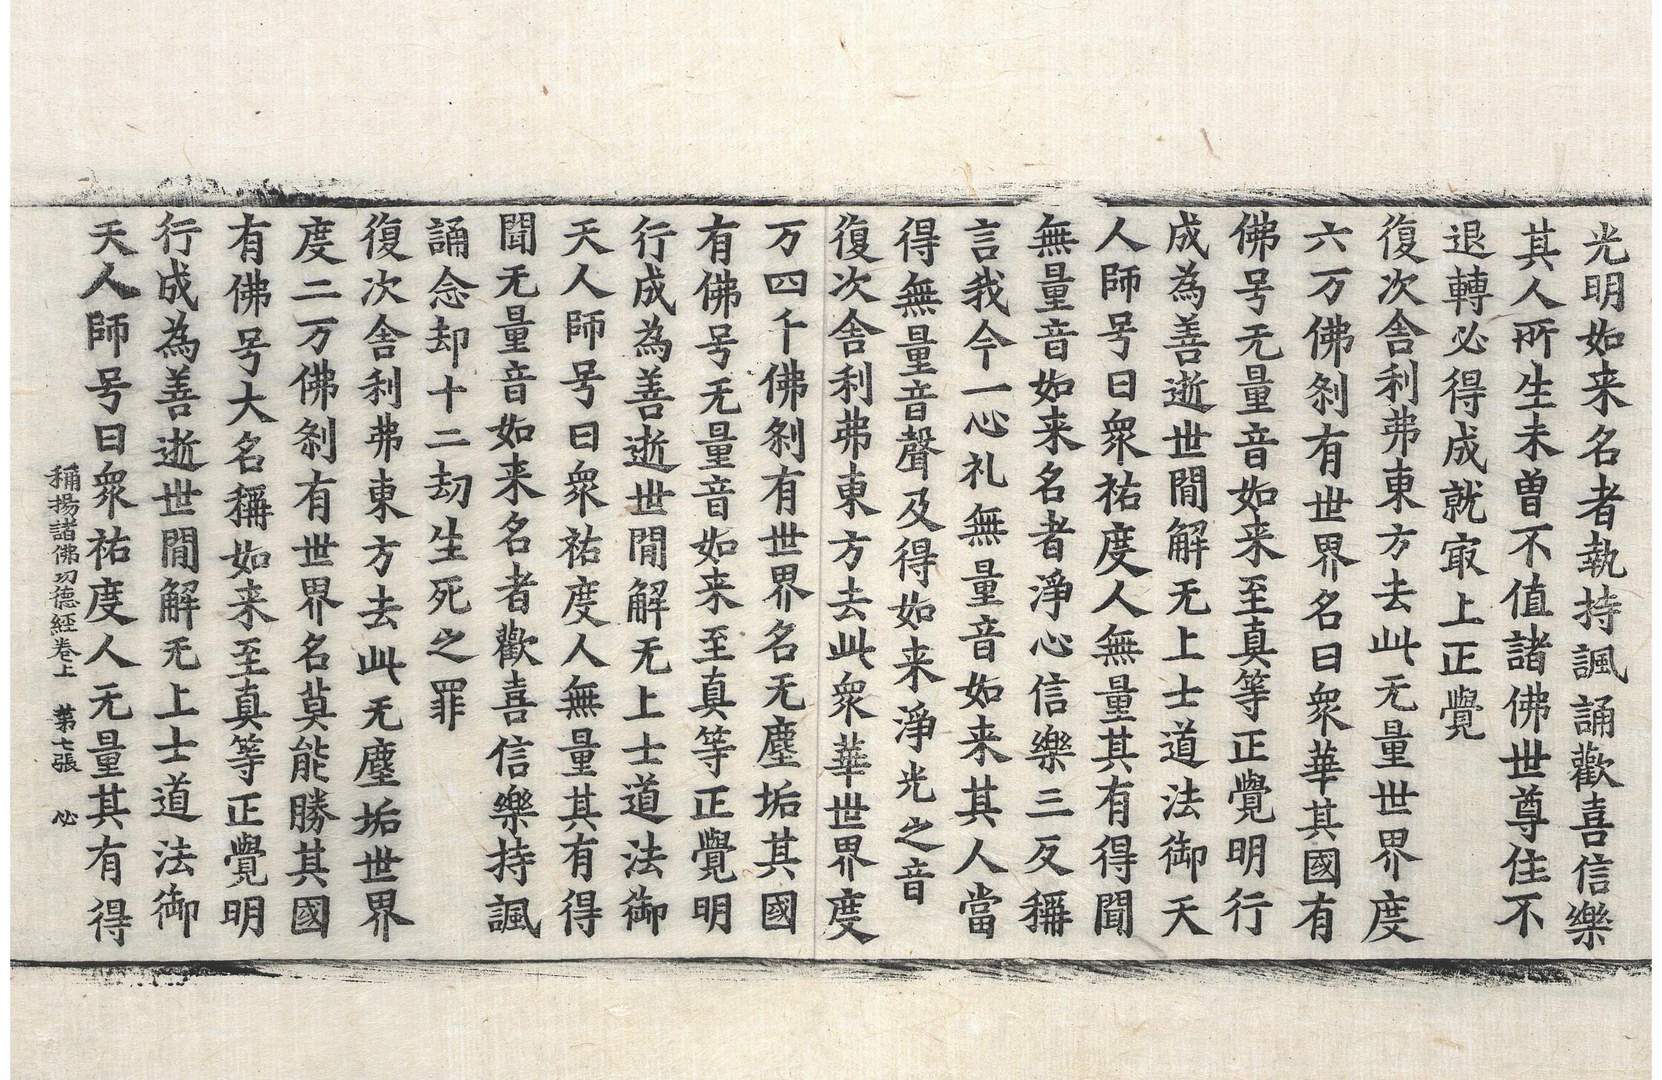 光明如来名者執持諷誦歡喜信樂
其人所生未曽不值諸佛世尊住不
退轉必得成就㝡上正覺
復次舎利弗東方去此无量世界度
六万佛刹有世界名曰衆華其國有
佛号无量音如来至真等正覺明行
成為善逝世間解无上士道法御天
人師号曰衆祐度人無量其有得聞
無量音如来名者淨心信樂三反稱
言我今一心礼無量音如来其人當
得無量音聲及得如来淨光之音
復次舎利弗東方去此衆華世界度
万四千佛刹有世界名无塵垢其國
有佛号无量音如来至真等正覺明
行成為善逝世間解无上士道法御
天人師号曰衆祐度人無量其有得
聞无量音如来名者歡喜信樂持諷
誦念却十二劫生死之罪
復次舎利弗東方去此无塵垢世界
度二万佛刹有世界名莫能勝其國
有佛号大名稱如来至真等正覺明
行成為善逝世間解无上士道法御
天人師号曰衆祐度人无量其有得
稱揚諸佛功德經卷上 第七張 必